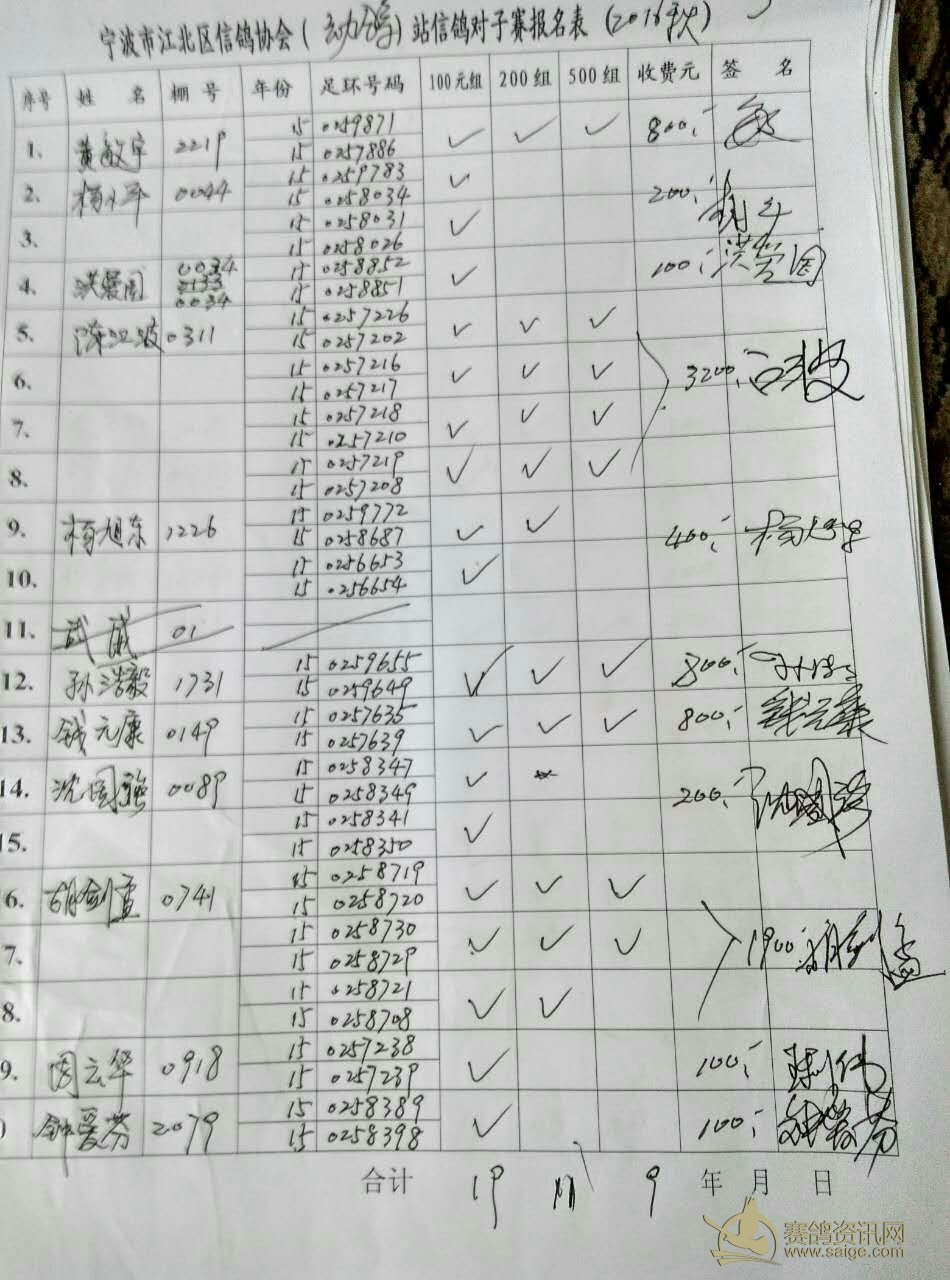 宁波市江北区信鸽协会( )站信鸽对子赛报名表(2016秋)
序号 姓 名 棚号 年份 足环号码 100元组 200组 500组 收费元 签 名
1. 黄敏宇 2219 15 0259871 ✓ ✓ ✓ 800,-
15 0257886
2. 杨小平 0044 15 0259783 ✓ 200,-
15 0258034
3. 15 0258031 ✓
15 0258026
4. 洪爱国 0034 15 0258852 ✓ 100,- 洪爱国
0034 15 0258851
5. 陈江波 0311 15 0257226 ✓ ✓ ✓
15 0257202
6. 15 0257216 ✓ ✓ ✓ 3200,-
15 0257217
7. 15 0257218 ✓ ✓ ✓
15 0257210
8. 15 0257219 ✓ ✓ ✓
15 0257208
9. 杨旭东 1226 15 0259772 ✓ ✓ 400,-
15 0258687
10. 15 0256653 ✓
15 0256654
11. 武威 01
12. 孙浩毅 1731 15 0259655 ✓ ✓ ✓ 800,-
15 0259649
13. 钱元康 0149 15 0257635 ✓ ✓ ✓ 800,- 钱元康
15 0257639
14. 沈国强 0089 15 0258347 ✓ 200,- 沈国强
15 0258349
15. 15 0258341 ✓
15 0258350
6. 胡剑孟 0741 15 0258719 ✓ ✓ ✓
15 0258720
7. 15 0258730 ✓ ✓ ✓ 1900,-
15 0258729
8. 15 0258721 ✓ ✓
15 0258708
9. 周云华 0918 15 0257238 ✓ 100,-
15 0257239
钟爱芬 2079 15 0258389 ✓ 100,- 钟爱芬
15 0258398
合计 19 11 9 年 月 日
赛鸽资讯网
www.saige.com